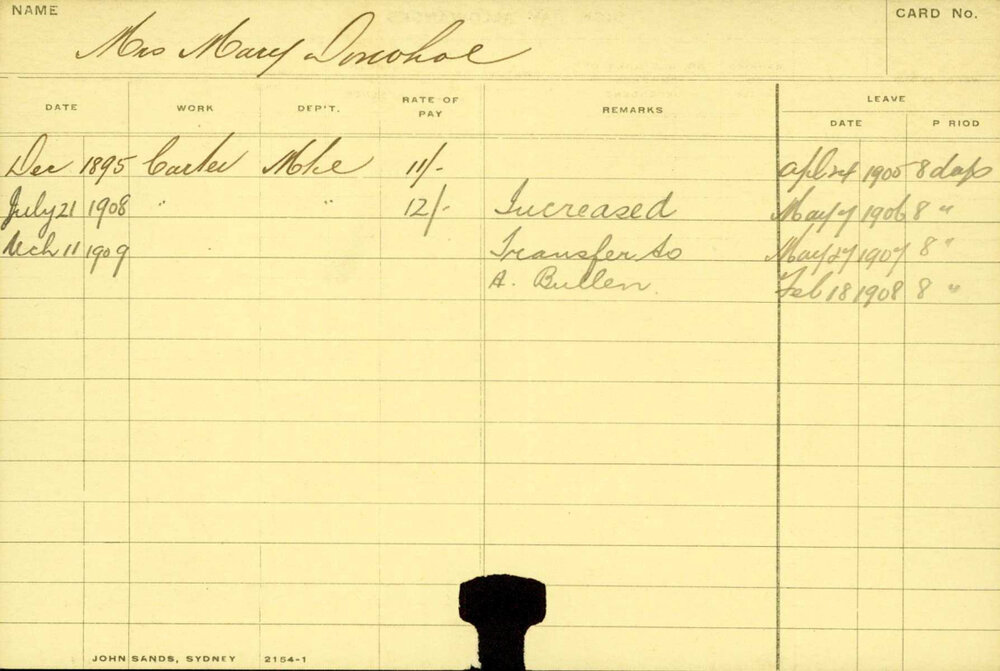 NAME
CARD No.
Mrs Mary Donohoe
DATE WORK DEP'T. RATE OF PAY REMARKS LEAVE
DATE P RIOD
Dec 1895 Carter Mkt 11/- Apl 24 1905 8 days
July 21 1908 " " 12/- Increased May 7 1906 8 "
Mch 11 1909 Transfer to May 27 1907 8 "
A. Bullen. Feb 18 1908 8 "
JOHN SANDS, SYDNEY 2154-1